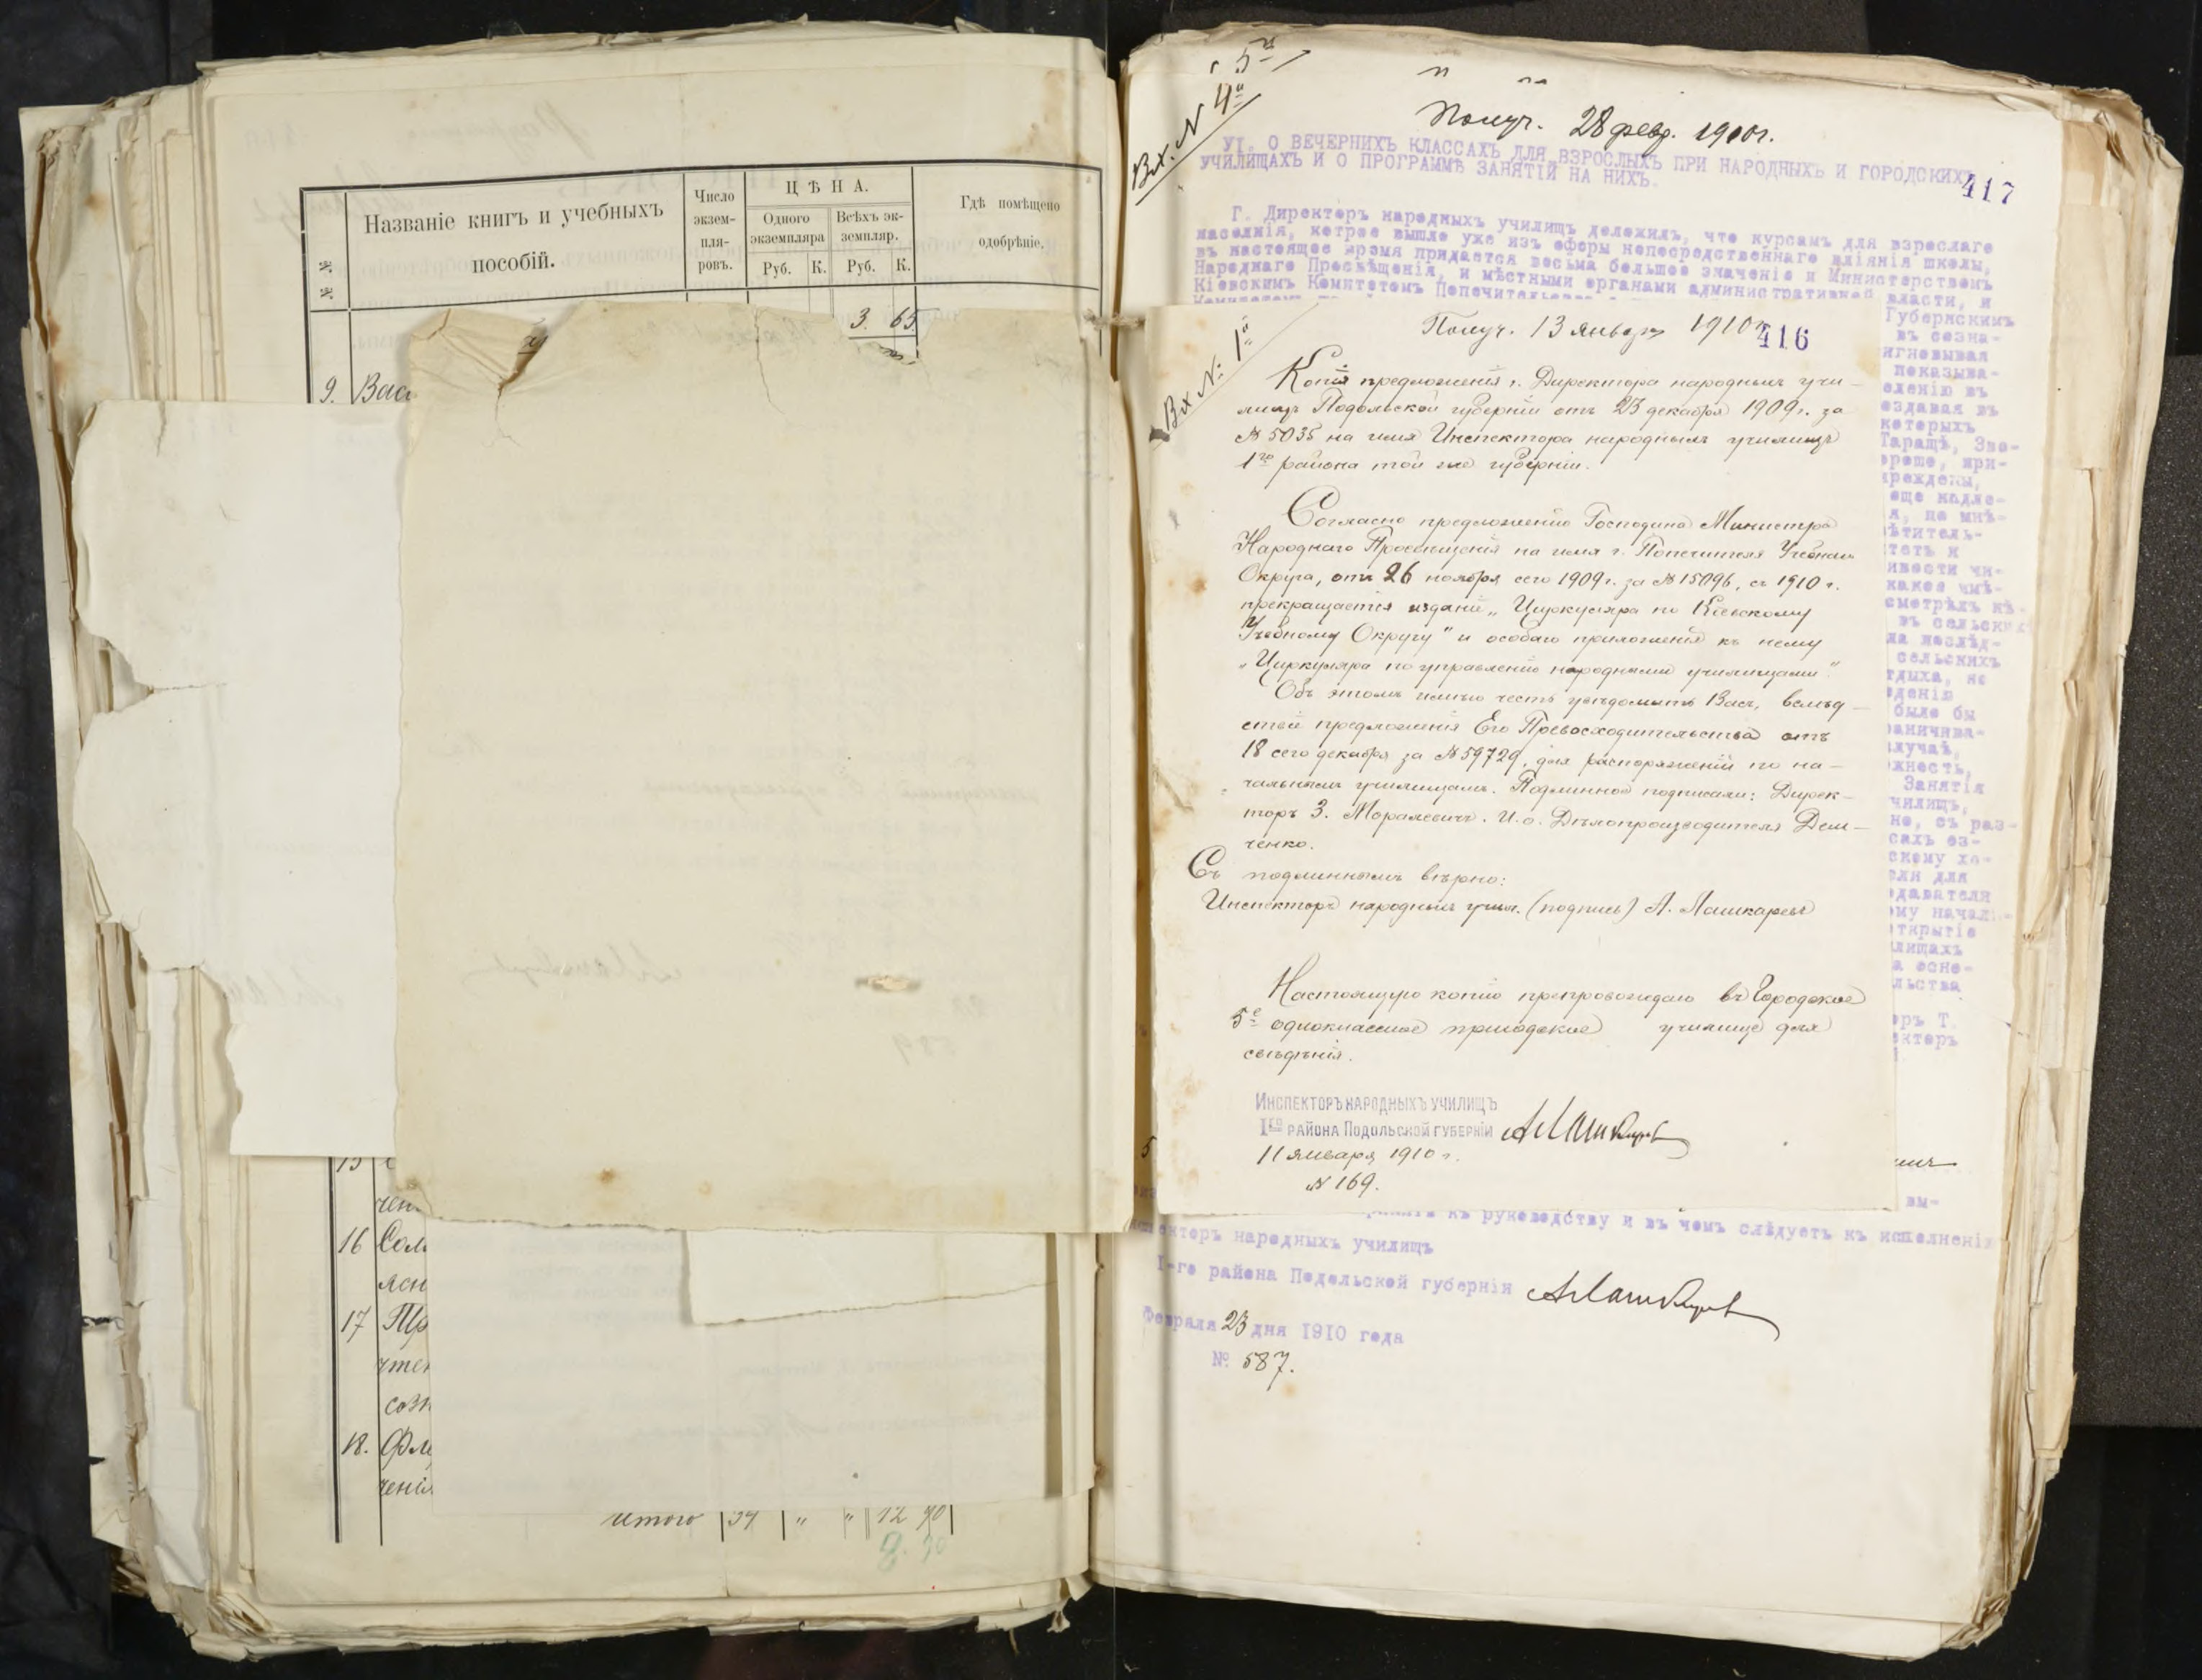 № №
Названіе книгъ и учебныхъ
пособій.
Число
экзем-
пля-
ровъ.
ЦѢНА.
Одного
экземпляра
Всѣхъ эк-
земпляр.
Руб. К. Руб. К.
Гдѣ помѣщено
одобрѣніе.
3. 65.
9. Вас
15
чен
16 Сол
ясн
17 Тр
чтен
созн
18.
чені
итого 34 " " 12 90
8. 30
Вх. N 4й
Получ. 28 февр. 1910 г.
УІ. О ВЕЧЕРНИХЪ КЛАССАХЪ ДЛЯ ВЗРОСЛЫХЪ ПРИ НАРОДНЫХЪ И ГОРОДСКИХЪ
УЧИЛИЩАХЪ И О ПРОГРАММѢ ЗАНЯТІЙ НА НИХЪ.
417
Г. Директоръ народныхъ училищъ доложилъ, что курсамъ для взрослаго
населнія, котрое вышло уже изъ сферы непосредственнаго вліянія школы,
въ настоящее время придается весьма большое значеніе и Министерствомъ
Народнаго Просвѣщенія, и мѣстными органами административной власти, и
Кіевскимъ Комитетомъ Попечительства
Губернскимъ
въ созна-
игновывая
показыва-
оленію въ
оздавая въ
которыхъ
Таращѣ, Зве-
ороше, при-
чреждены,
еще надле-
я, по мнѣ-
ѣтитель-
тетъ и
ивости чи-
какое имѣ-
смотрѣлъ нѣ-
въ сельских
да послѣд-
сельскихъ
тдыха, не
денію
было бы
раничива-
лучаѣ,
жность,
Занятія
чилищъ,
но, съ раз-
сахъ оз-
скому хо-
ели для
одаватели
ому началь-
ткрытіе
лищахъ
а осно-
льства
оръ Т.
екторъ
Вх. №: 1й
Получ. 13 января 1910 г.
416
Копія предложенія г. Директора народныхъ учи-
лищъ Подольской губерніи отъ 23 декабря 1909 г. за
№ 5035 на имя Инспектора народныхъ училищъ
1го района той же губерніи.
Согласно предложенію Господина Министра
Народнаго Просвѣщенія на имя г. Попечителя Учебнаго
Округа, отъ 26 ноября сего 1909 г. за № 15096, съ 1910 г.
прекращается изданіе „Циркуляра по Кіевскому
Учебному Округу" и особаго приложенія къ нему
„Циркуляра по управленію народными училищами".
Объ этомъ имѣю честь увѣдомить Васъ, вслѣд-
ствіе предложенія Его Превосходительства отъ
18 сего декабря за № 59729, для распоряженій по на-
чальнымъ училищамъ. Подлинное подписали: Дирек-
торъ З. Моралевичъ. И. о. Дѣлопроизводителя Дем-
ченко.
Съ подлиннымъ вѣрно:
Инспекторъ народныхъ учил. (подпись) А. Лашкаревъ
Настоящую копію препровождаю въ Городское
5е одноклассное приходское училище для
свѣдѣнія.
ИНСПЕКТОРЪ НАРОДНЫХЪ УЧИЛИЩЪ
Iго РАЙОНА ПОДОЛЬСКОЙ ГУБЕРНІИ АЛашкарев
11 января 1910 г.
№ 169.
вы-
къ руководству и въ чемъ слѣдуетъ къ исполненію
екторъ народныхъ училищъ
I-го района Подольской губерніи АЛашкарев
Февраля 23 дня 1910 года
№ 587.